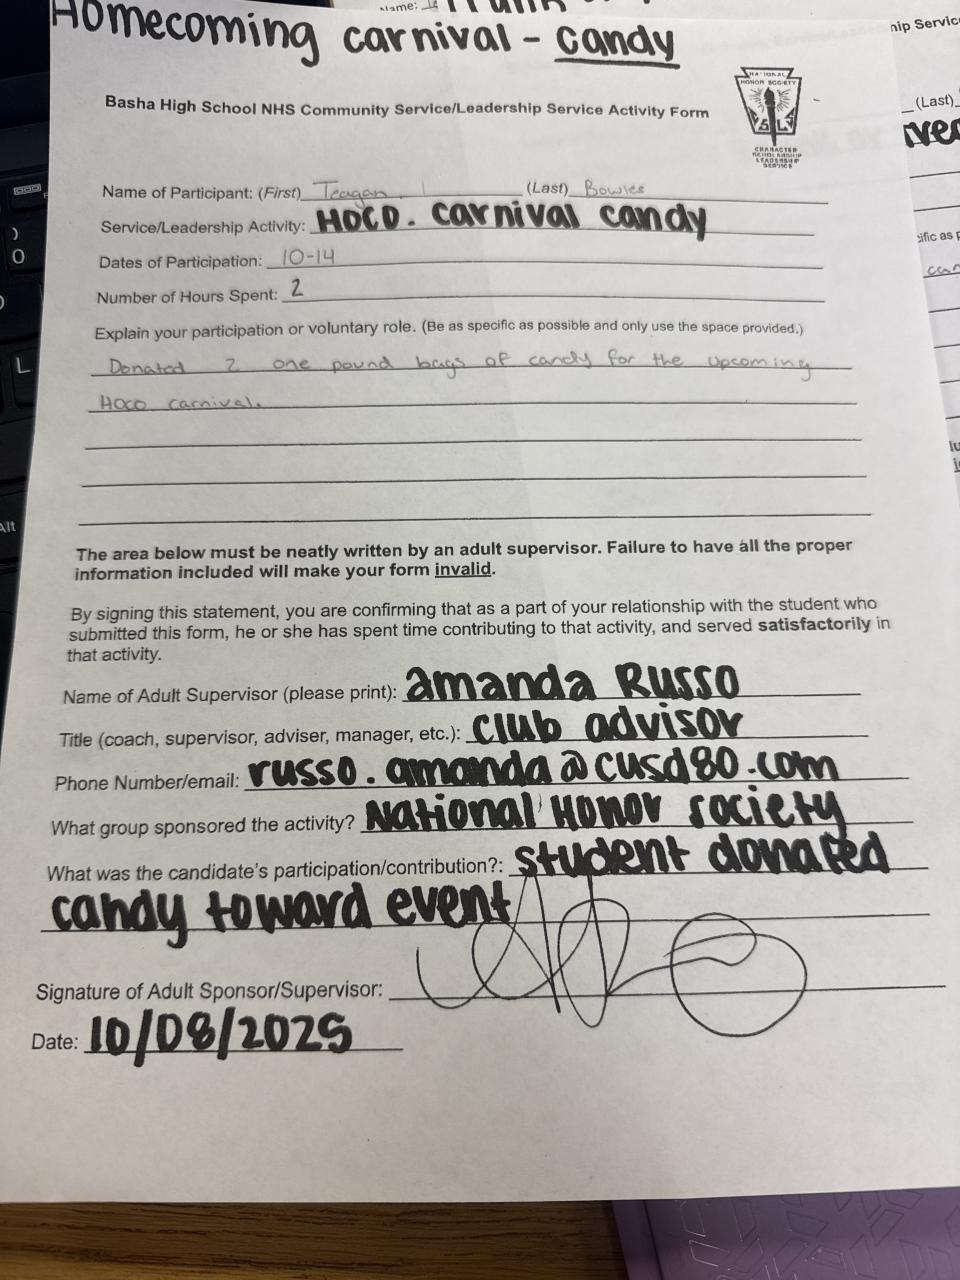 Name:
Homecoming carnival - candy
nip Servic
Basha High School NHS Community Service/Leadership Service Activity Form
NATIONAL
HONOR SOCIETY
S L
CHARACTER
SCHOLARSHIP
LEADERSHIP
SERVICE
(Last)
Name of Participant: (First) Teagan (Last) Bowles
Service/Leadership Activity: HOCO. carnival candy
Dates of Participation: 10-14
cific as p
Number of Hours Spent: 2
can
Explain your participation or voluntary role. (Be as specific as possible and only use the space provided.)
Donated 2 one pound bags of candy for the upcoming
HOCO carnival.
The area below must be neatly written by an adult supervisor. Failure to have all the proper
information included will make your form invalid.
By signing this statement, you are confirming that as a part of your relationship with the student who
submitted this form, he or she has spent time contributing to that activity, and served satisfactorily in
that activity.
Name of Adult Supervisor (please print): amanda Russo
Title (coach, supervisor, adviser, manager, etc.): club advisor
Phone Number/email: russo.amanda@cusd80.com
What group sponsored the activity? National Honor society
What was the candidate's participation/contribution?: student donated
candy toward event
Signature of Adult Sponsor/Supervisor:
Date: 10/08/2025
)
O
L
Alt